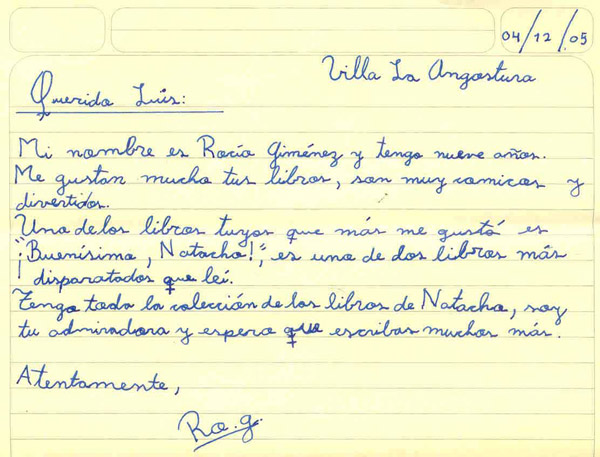 04/12/05
Villa La Angostura
Querido Luis:
Mi nombre es Rocío Giménez y tengo nueve años.
Me gustan mucho tus libros, son muy comicos y
divertidos.
Uno de los libros tuyos que más me gustó es
"¡Buenísimo, Natacha!", es uno de dos libros más
disparatados que leí.
Tengo toda la colección de los libros de Natacha, soy
tu admiradora y espero que escribas muchos más.
Atentamente,
Ro.g.